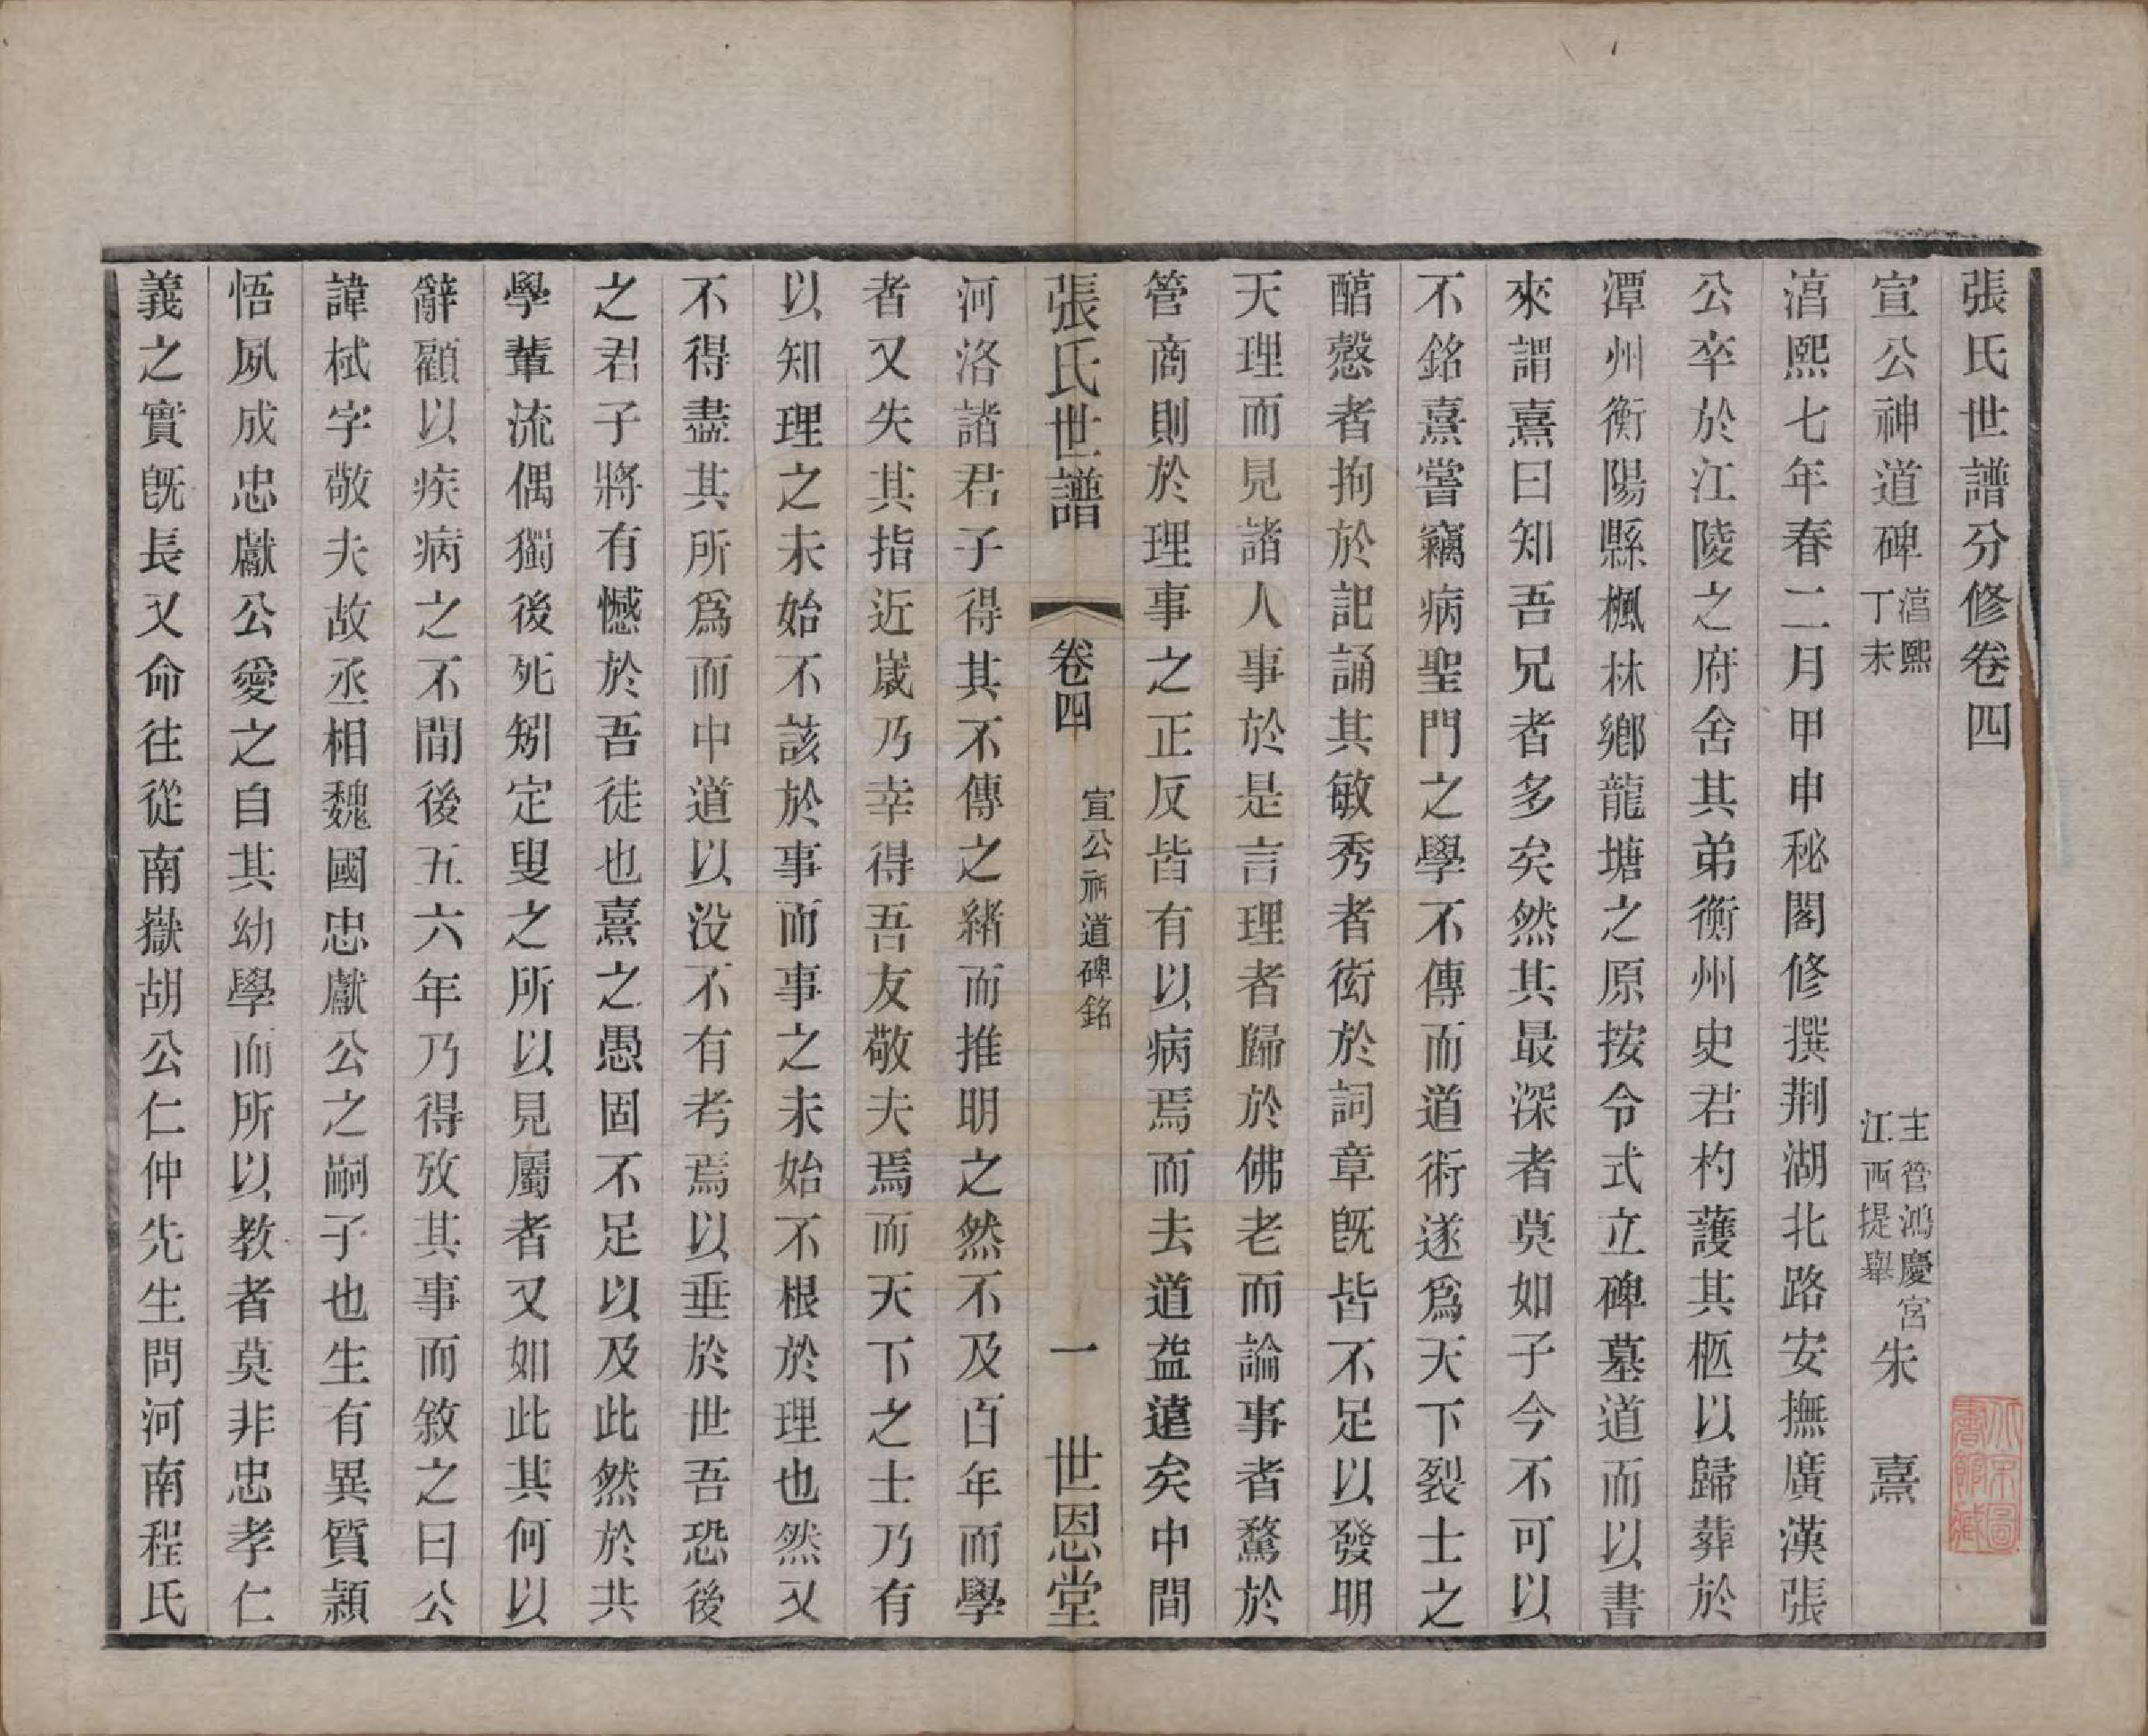 張氏世譜分修卷四
宣公神道碑淳熙丁未 主管鴻慶宮江西提舉朱熹
淳熙七年春二月甲申秘閣修撰荆湖北路安撫廣漢張
公卒於江陵之府舍其弟衡州史君杓護其柩以歸葬於
潭州衡陽縣楓林鄉龍塘之原按令式立碑墓道而以書
來謂熹曰知吾兄者多矣然其最深者莫如子今不可以
不銘熹嘗竊病聖門之學不傳而道術遂爲天下裂士之
醕慤者拘於記誦其敏秀者衒於詞章旣皆不足以發明
天理而見諸人事於是言理者歸於佛老而論事者騖於
管商則於理事之正反皆有以病焉而去道益遠矣中間
張氏世譜 卷四 宣公神道碑銘 一 世恩堂
河洛諸君子得其不傳之緒而推明之然不及百年而學
者又失其指近歲乃幸得吾友敬夫焉而天下之士乃有
以知理之未始不該於事而事之未始不根於理也然又
不得盡其所爲而中道以没不有考焉以垂於世吾恐後
之君子將有憾於吾徒也熹之愚固不足以及此然於共
學輩流偶獨後死矧定叟之所以見屬者又如此其何以
辭顧以疾病之不間後五六年乃得攷其事而敘之曰公
諱栻字敬夫故丞相魏國忠獻公之嗣子也生有異質穎
悟夙成忠獻公愛之自其幼學而所以教者莫非忠孝仁
義之實旣長又命往從南嶽胡公仁仲先生問河南程氏